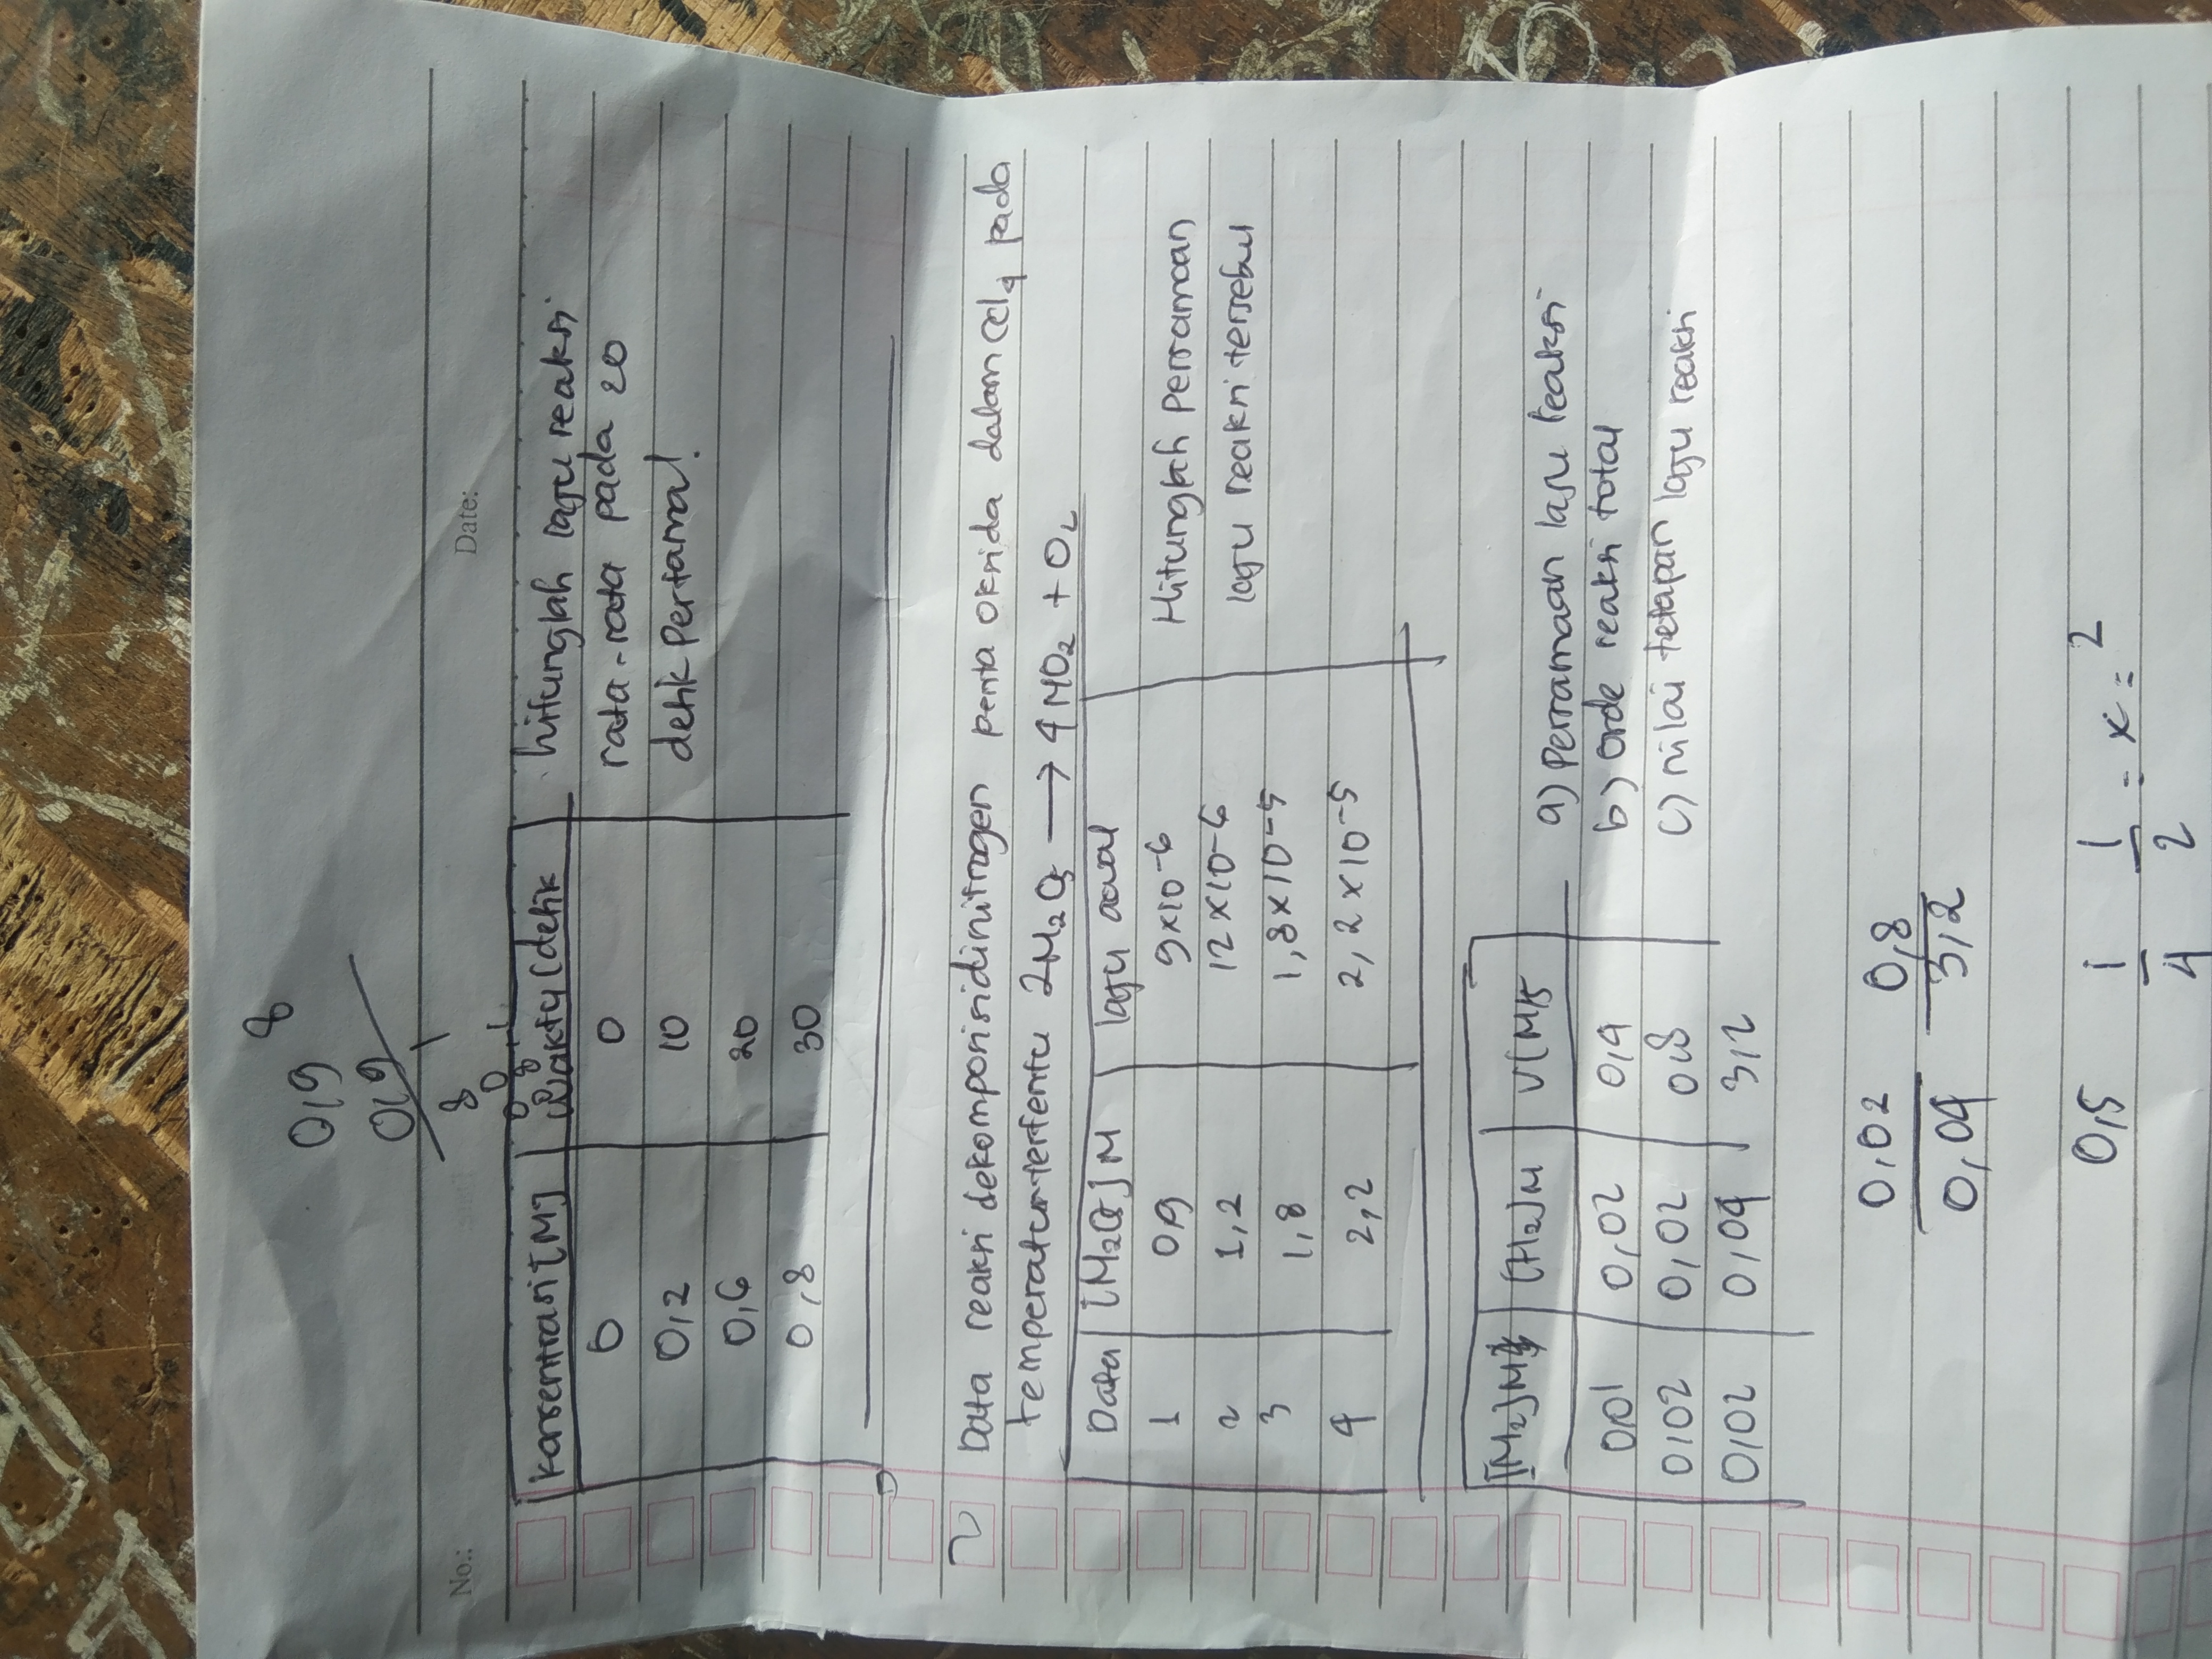 8
0,9
0,9
1
8
No.:
Date:
0
0 8 1
Konsentrasi [M] Waktu (detik hitunglah laju reaksi
0 0 rata-rata pada 20
0,2 10 detik pertama!
0,6 20
0,8 30
2 Data reaksi dekomposisidinitrogen penta oksida dalam CCl4 pada
temperatur tertentu 2N2O5 → 4NO2 + O2
Data [N2O5] M laju awal
1 0,9 9x10-6 Hitunglah persamaan
2 1,2 12x10-6 laju reaksi tersebut
3 1,8 1,8x10-5
4 2,2 2,2x10-5
[N2]M [H2]M V(M/s
a) persamaan laju reaksi
0,01 0,02 0,4 b) orde reaksi total
0,02 0,02 0,8 c) nilai tetapan laju reaksi
0,02 0,04 3,2
0,02 0,8
0,04 3,2
0,5 1/4 1/2 = x = 2